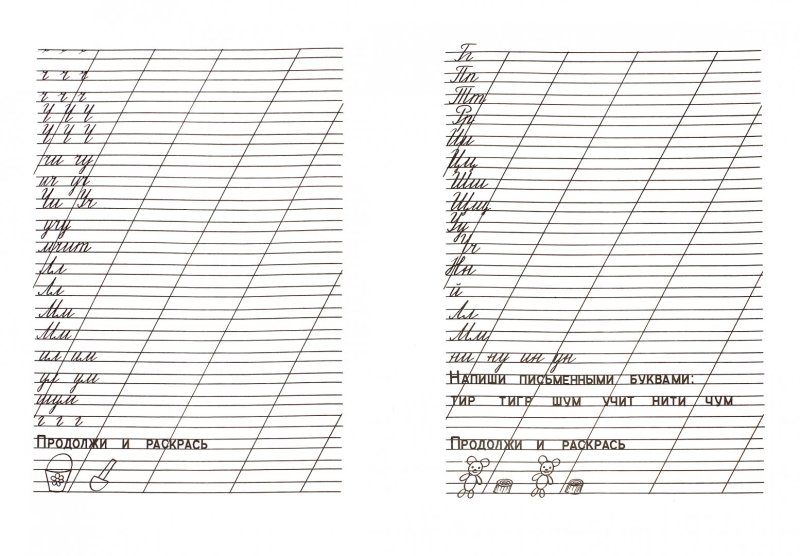 ч ч ч
ч ч ч
Ч Ч Ч
Ч Ч Ч
чи чу
ич уч
Чи Уч
учу
мчит
Лл
Лл
Мм
Мм
ил им
ул ум
шум
г г г
Продолжи и раскрась
Гг
Пп
Тт
Рр
Ии
Цц
Шш
Щщ
Уу
Чч
Нн
й
Лл
Мм
ни ну ин ун
Напиши письменными буквами:
тир тигр шум учит нити чум
Продолжи и раскрась